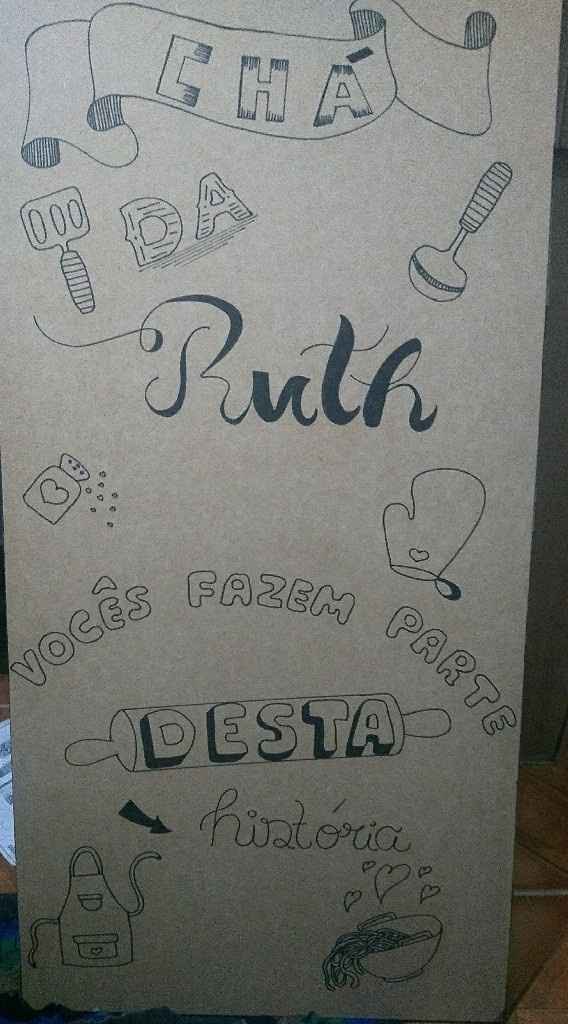 CHÁ
DA
Ruth
VOCÊS FAZEM PARTE
DESTA
história